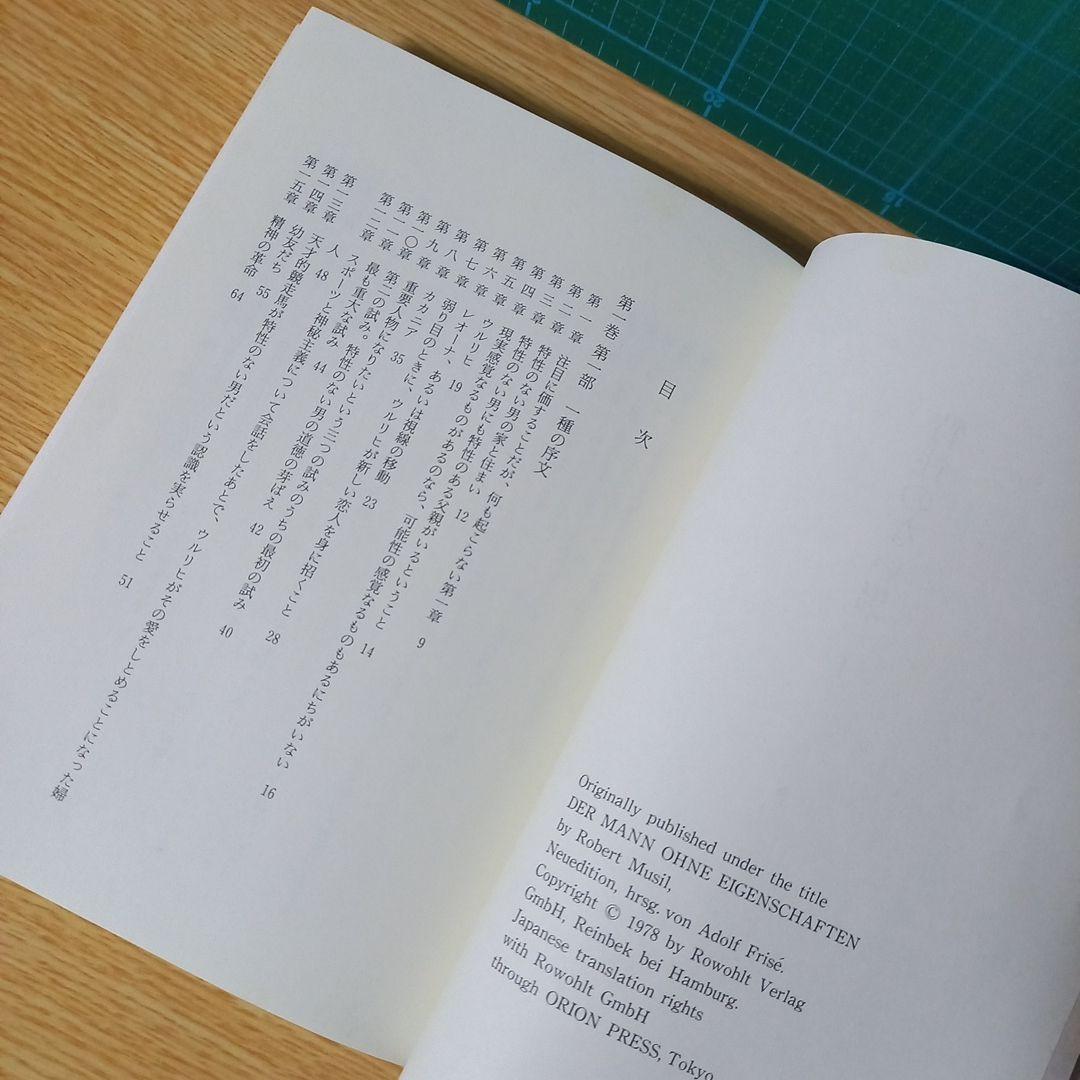 Originally published under the title
DER MANN OHNE EIGENSCHAFTEN
by Robert Musil,
Neuedition, hrsg. von Adolf Frisé.
Copyright © 1978 by Rowohlt Verlag
GmbH, Reinbek bei Hamburg.
Japanese translation rights
with Rowohlt GmbH
through ORION PRESS, Tokyo
目次
第一巻 第一部 一種の序文
第一章 注目に価することだが、何も起こらない第一章 9
第二章 特性のない男の家と住まい 12
第三章 特性のない男にも特性のある父親がいるということ 14
第四章 現実感覚なるものがあるのなら、可能性の感覚なるものもあるにちがいない 16
第五章 ウルリヒ 19
第六章 レオーナ、あるいは視線の移動 23
第七章 弱り目のときに、ウルリヒが新しい恋人を身に招くこと 28
第八章 カカニア 35
第九章 重要人物になりたいという三つの試みのうちの最初の試み 40
第一〇章 第二の試み。特性のない男の道徳の芽ばえ 42
第一一章 最も重大な試み 44
第一二章 スポーツと神秘主義について会話をしたあとで、ウルリヒがその愛をしとめることになった婦
人 48
第一三章 天才的競走馬が特性のない男だという認識を実らせること 51
第一四章 幼友だち 55
第一五章 精神の革命 64
20
15